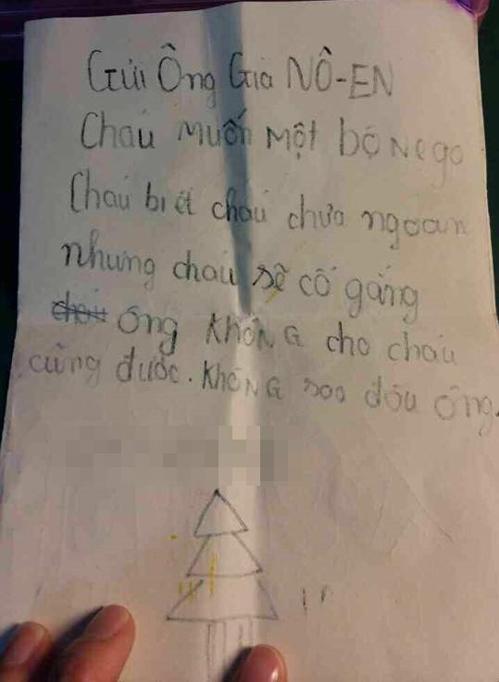 Gửi Ông Già NÔ-EN
Cháu muốn một bộ Nego
Cháu biết cháu chưa ngoan
nhưng cháu sẽ cố gắng
ông KHÔNG cho cháu
cũng được. KHÔNG sao đâu ông.